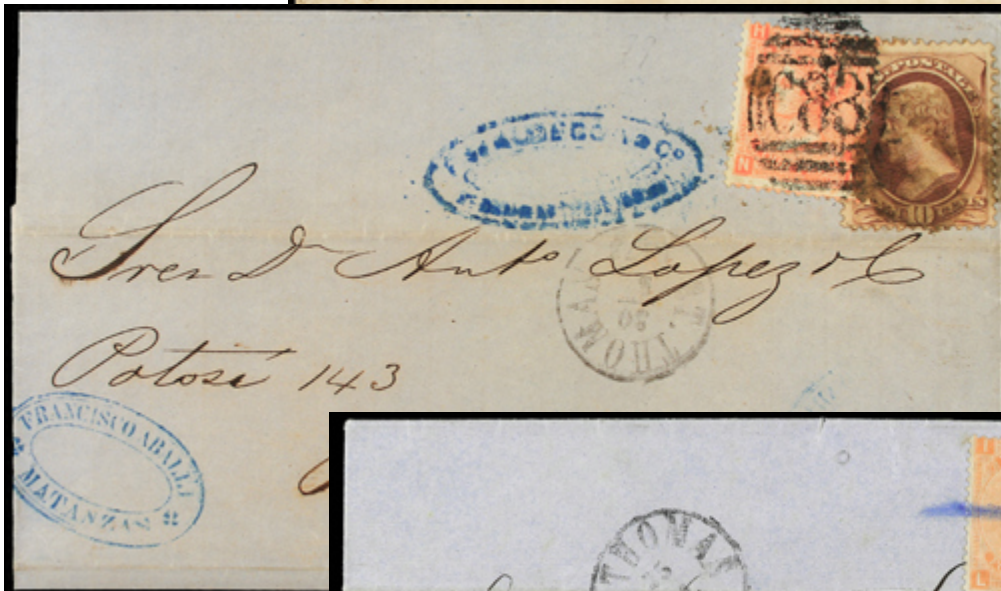 H
POSTAGE
C83
N
& Co
Sres Dn Anto Lopez & C
ST. THOMAS
Potosi 143
FRANCISCO ABALLI
MATANZAS
THOMAS
L